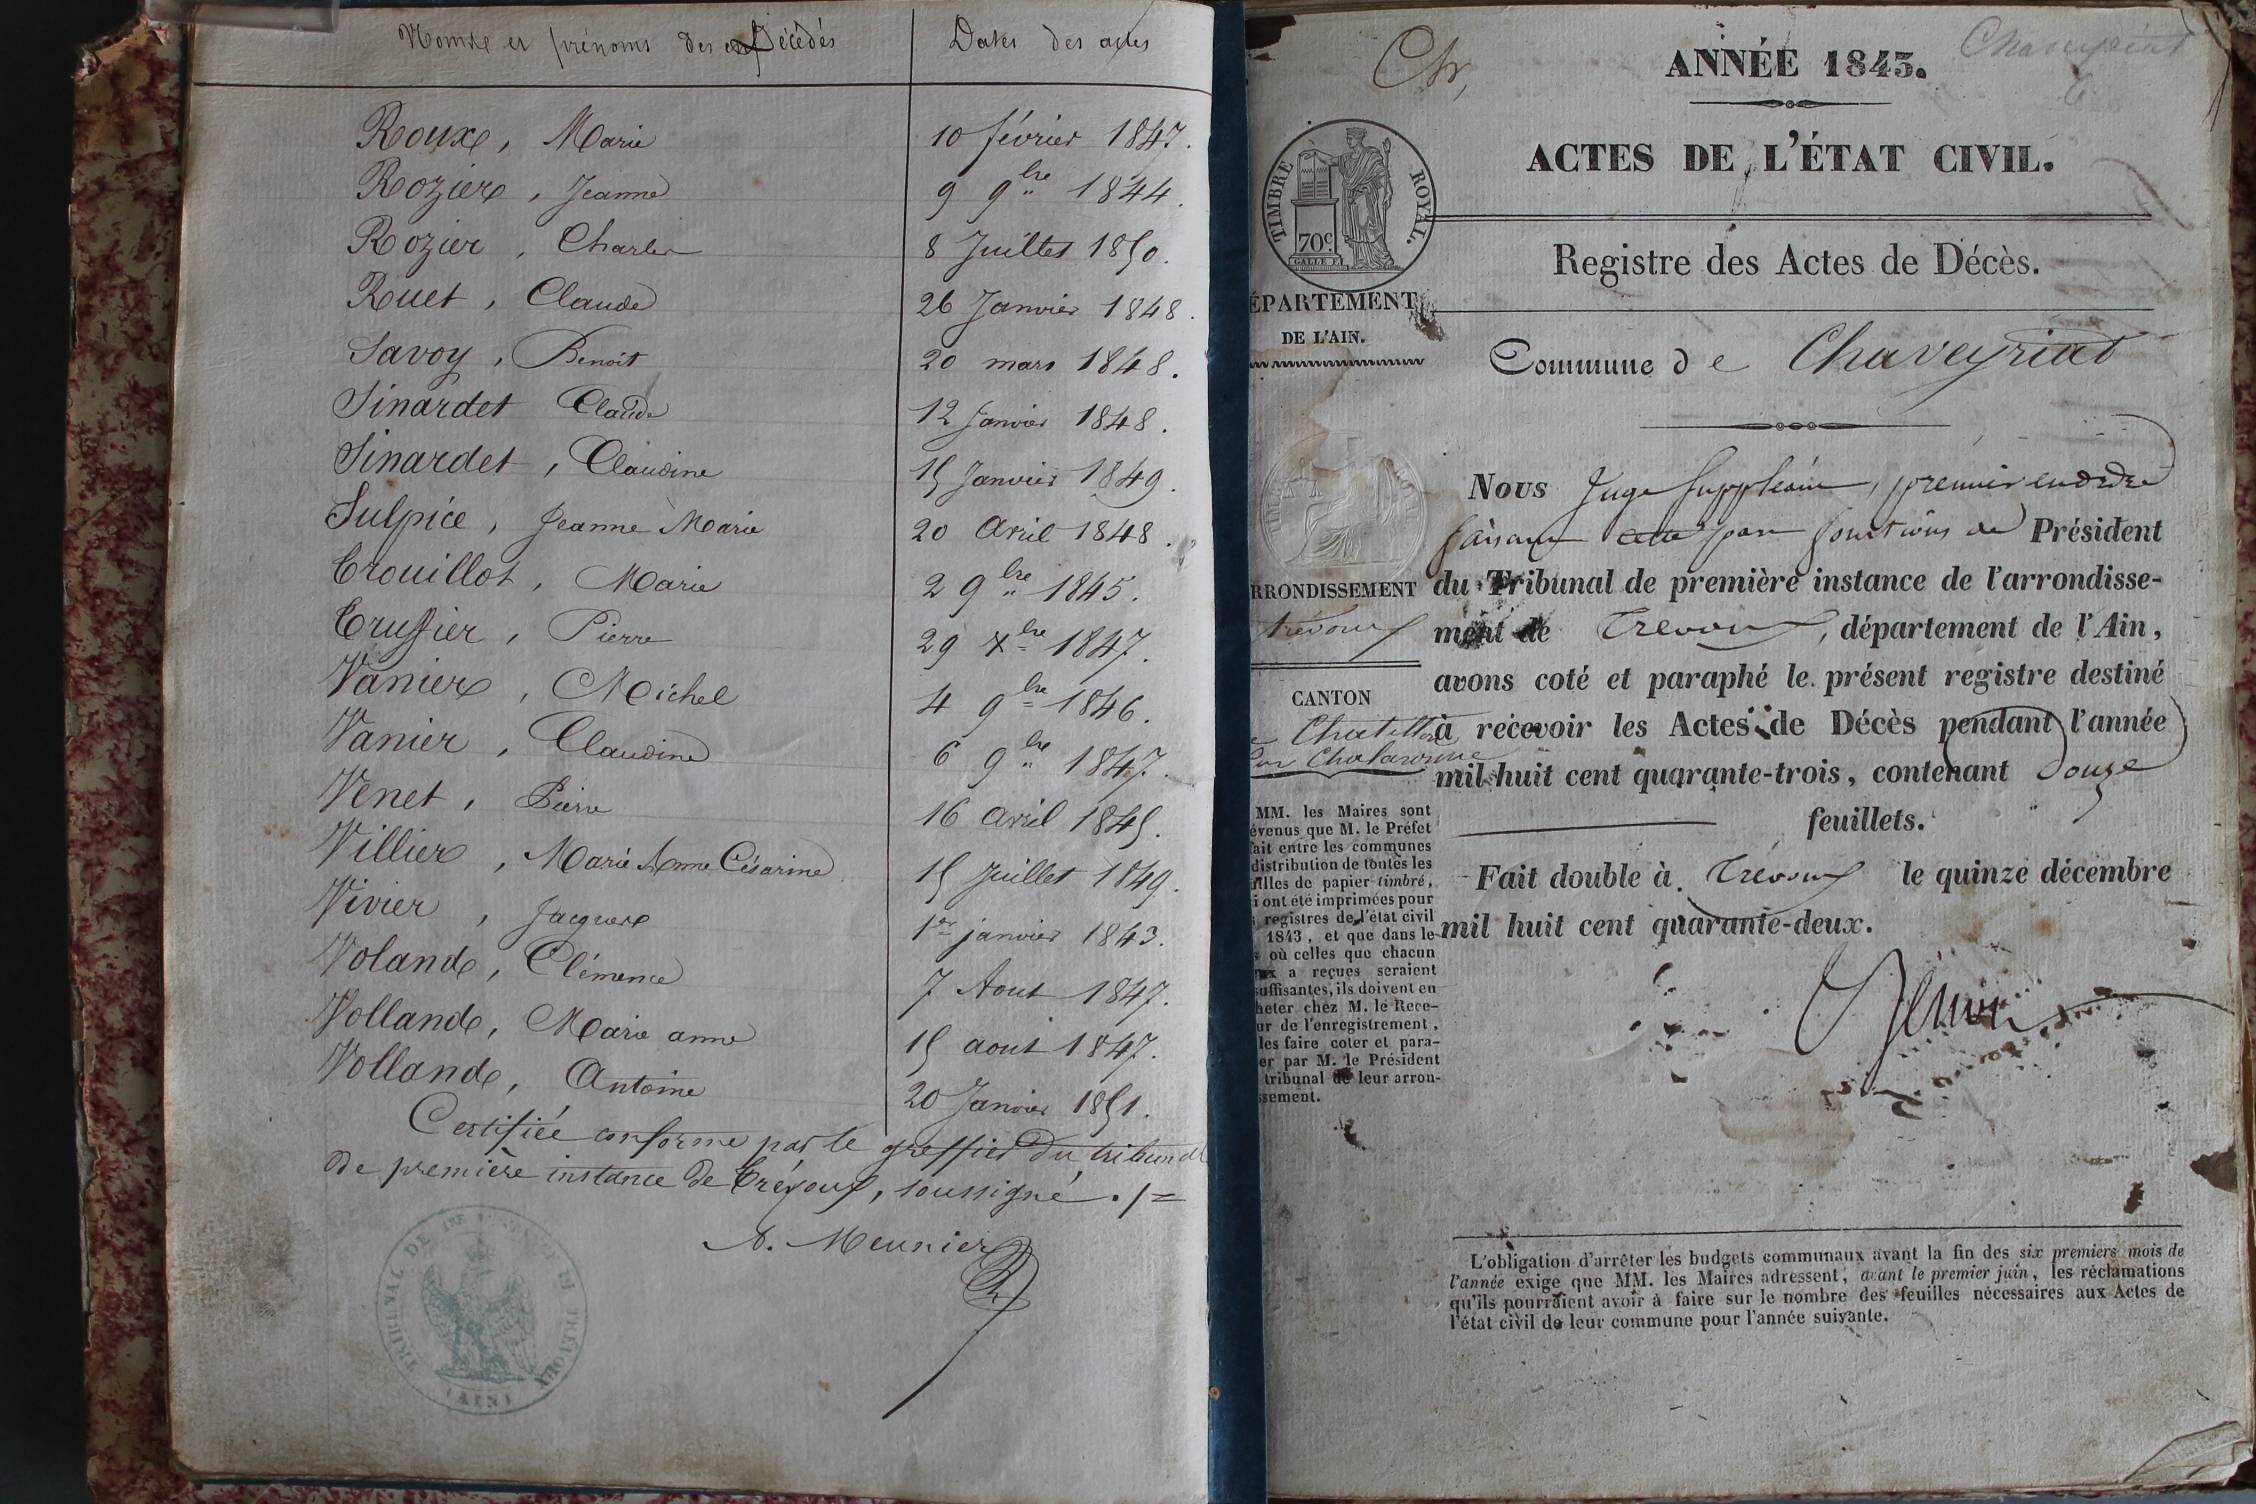 Noms et prénoms des Décédés
Dates des actes
Roux, Marie 10 février 1847.
Rozier, Jeanne 9 9bre 1844.
Rozier, Charles 8 Juillet 1850.
Ruet, Claude 26 Janvier 1848.
Savoy, Benoit 20 mars 1848.
Sinardet Claude 12 Janvier 1848.
Sinardet, Claudine 15 Janvier 1849.
Sulpice, Jeanne Marie 20 Avril 1848.
Trouillot, Marie 2 9bre 1845.
Truffier, Pierre 29 Xbre 1847.
Vanier, Michel 4 9bre 1846.
Vanier, Claudine 6 9bre 1847.
Venet, Pierre 16 Avril 1845.
Villier, Marie Anne Césarine 15 Juillet 1849.
Vivier, Jacques 1er janvier 1843.
Voland, Clémence 7 Aout 1847.
Volland, Marie anne 15 aout 1847.
Volland, Antoine 20 Janvier 1851.
Certifiée conforme par le greffier du tribunal
de première instance de Trévoux, soussigné ./=
A. Meunier
TRIBUNAL DE 1RE INSTANCE DE TRÉVOUX
(AIN)
Chaveyriat
Ch,
ANNÉE 1843.
ACTES DE L'ÉTAT CIVIL.
TIMBRE ROYAL.
70c
GALLE F.
Registre des Actes de Décès.
ÉPARTEMENT
DE L'AIN.
Commune de Chaveyriat
Nous Juge Suppléant, premier en ordre
faisant par fonctions de Président
du Tribunal de première instance de l'arrondisse-
ment de Trevoux, département de l'Ain,
avons coté et paraphé le présent registre destiné
à recevoir les Actes de Décès pendant l'année
mil huit cent quarante-trois, contenant douze
feuillets.
Fait double à Trévoux le quinze décembre
mil huit cent quarante-deux.
RRONDISSEMENT
Trévoux
CANTON
e Chatillon
sur Chalaronne
MM. les Maires sont
évenus que M. le Préfet
ait entre les communes
distribution de toutes les
illes de papier timbré,
i ont été imprimées pour
s registres de l'état civil
1843, et que dans le
s où celles que chacun
ux a reçues seraient
suffisantes, ils doivent en
heter chez M. le Rece-
ur de l'enregistrement,
les faire coter et para-
er par M. le Président
tribunal de leur arron-
ssement.
L'obligation d'arrêter les budgets communaux avant la fin des six premiers mois de
l'année exige que MM. les Maires adressent, avant le premier juin, les réclamations
qu'ils pourraient avoir à faire sur le nombre des feuilles nécessaires aux Actes de
l'état civil de leur commune pour l'année suivante.